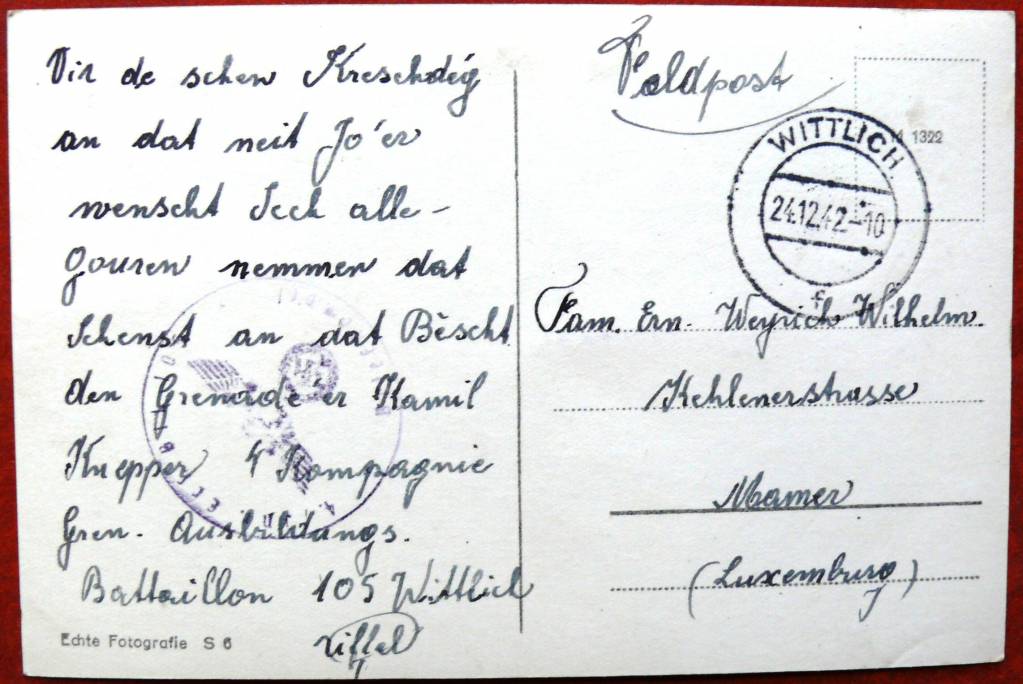 Vir de schen Kreschdég
an dat neit Jo'er
wenscht Iech alle-
gouren nemmer dat
Schenst an dat Bèscht
den Grenadeer Kamil
Knepper 4 Kompagnie
Gren. Ausbildungs.
Battaillon 105 Wittlich
Eiffel
Echte Fotografie S 6
Feldpost
1322
WITTLICH
24.12.42-10
f
Fam. Ern. Weyrich Wilhelm.
Kehlenerstrasse
Mamer
(Luxemburg)